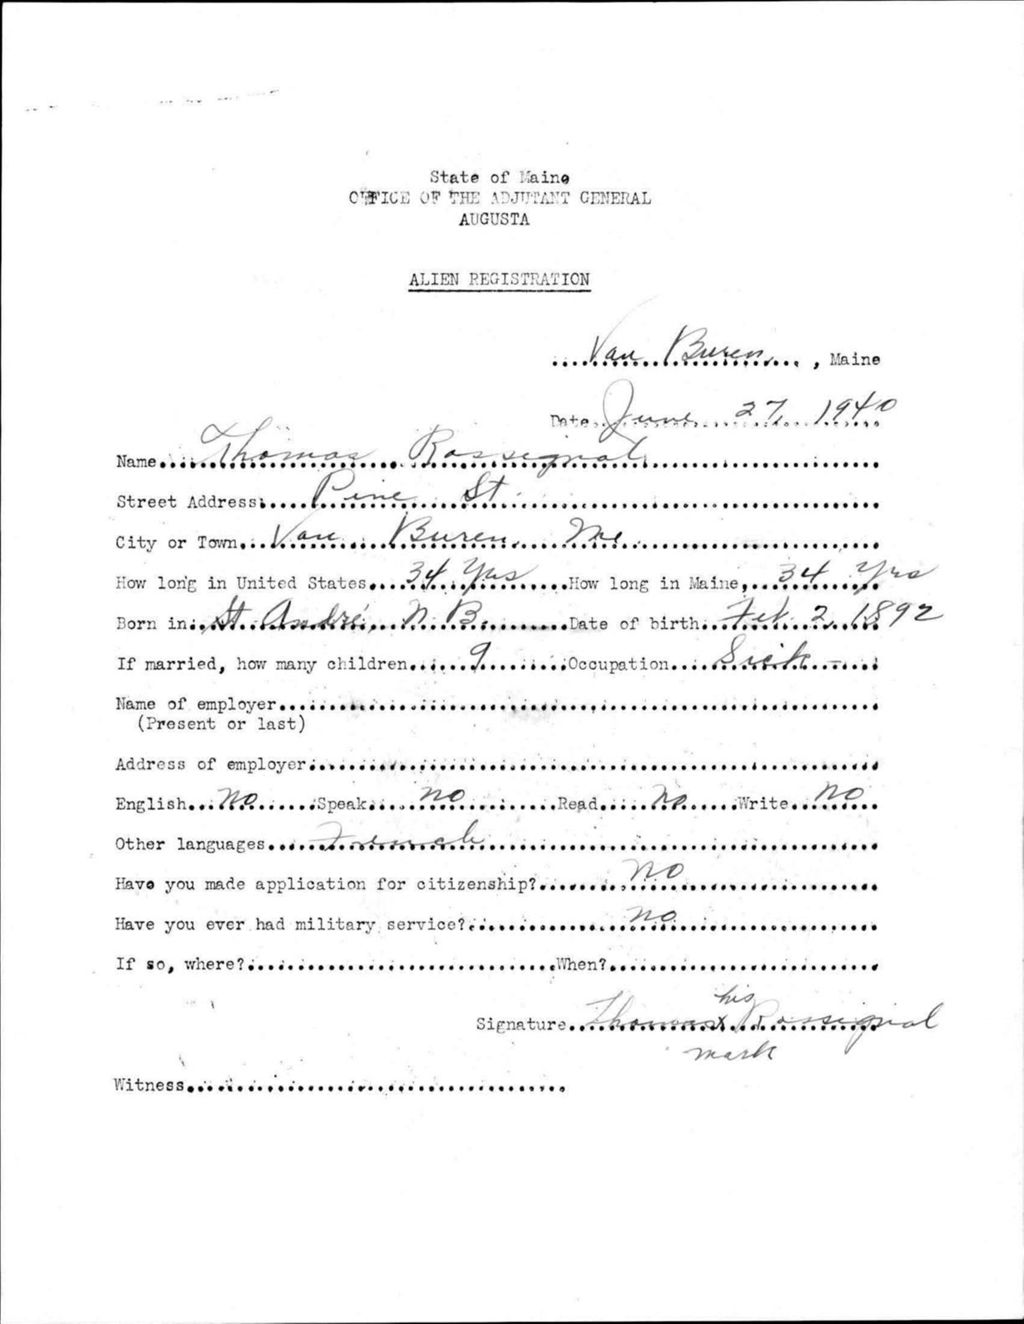 State of Maine
OFFICE OF THE ADJUTANT GENERAL
AUGUSTA
ALIEN REGISTRATION
Van Buren, Maine
Date June 27, 1940
Name Thomas Rossignal
Street Address Pine St.
City or Town Van Buren, Me.
How long in United States 34 Yrs How long in Maine 34 Yrs
Born in St. André, N.B. Date of birth Feb. 2, 1892
If married, how many children 9 Occupation Sick
Name of employer
(Present or last)
Address of employer
English No Speak No Read No Write No
Other languages French
Have you made application for citizenship? No
Have you ever had military service? No
If so, where? When?
his
Signature Thomas x Rossignal
mark
Witness